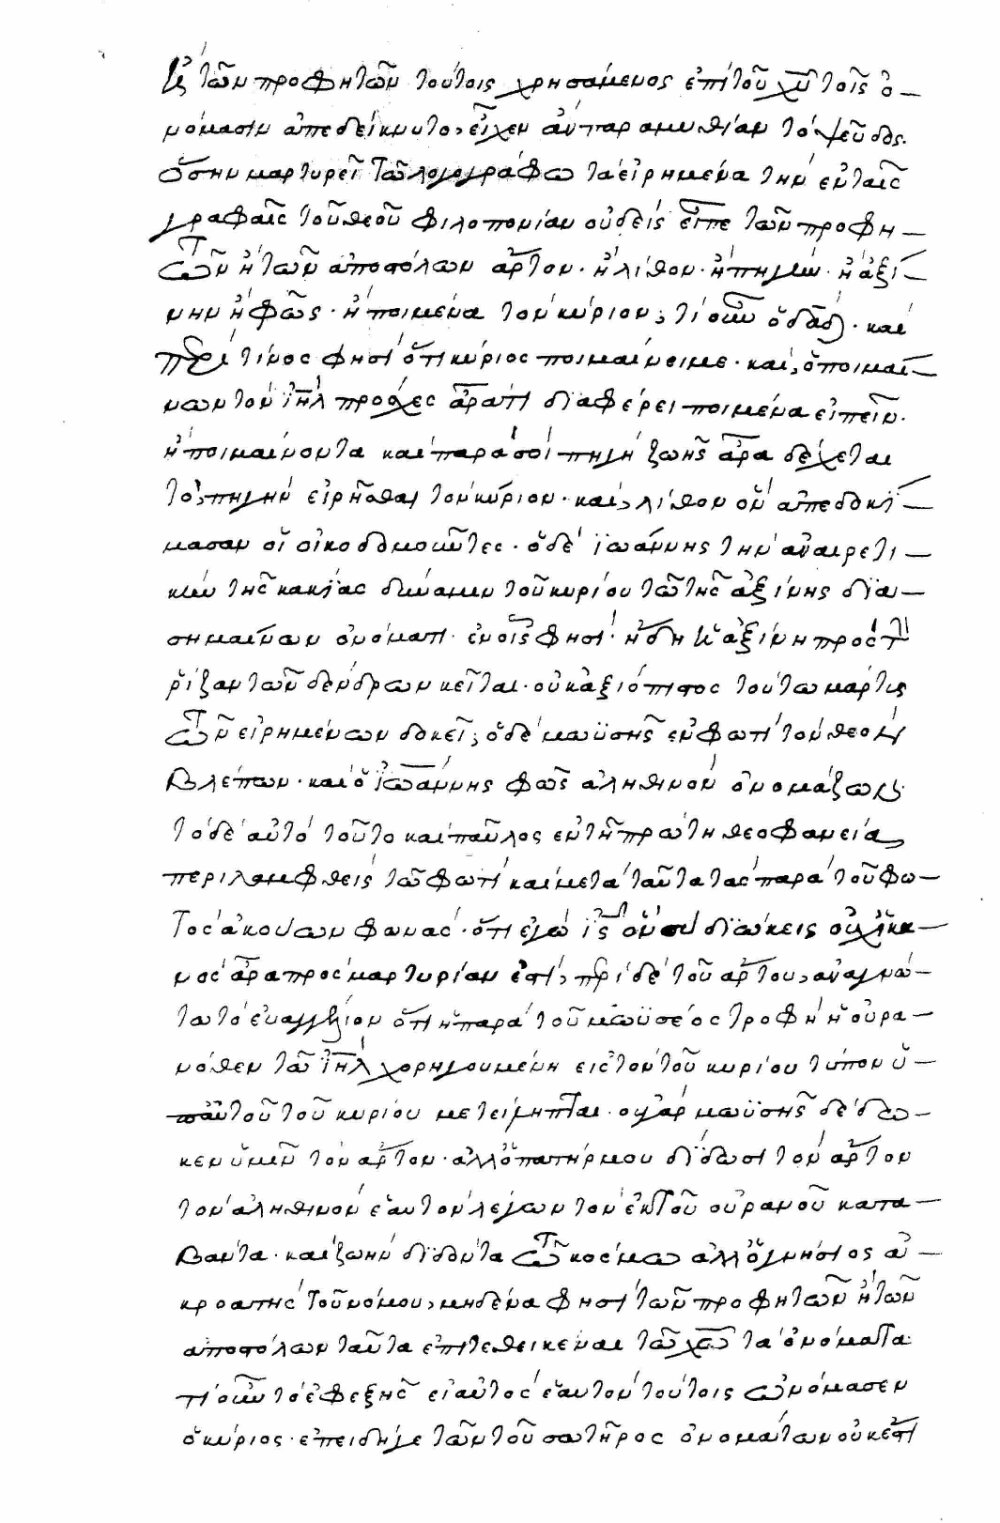 ἢ τῶν προφητῶν τούτοις χρησάμενος ἐπὶ τοῦ χυ τοῖς ὀ–
νόμασιν ἀπεδείκνυτο, εἶχεν ἂν παραμυθίαν τὸ ψεῦδος.
ὅσην μαρτυρεῖ τῶ λογογράφω τὰ εἰρημένα τὴν ἐν ταῖς
γραφαῖς τοῦ θεοῦ φιλοπονίαν οὐδεὶς εἶπε τῶν προφη–
τῶν ἢ τῶν ἀποστόλων ἄρτον· ἢ λίθον· ἢ πηγὴν· ἢ ἀξί–
νην ἢ φῶς· ἢ ποιμένα τὸν κύριον, τί οὖν ὁ δαδ· καὶ
περὶ τίνος φησὶ ὅτι κύριος ποιμαίνει με· καὶ, ὁ ποιμαί–
νων τὸν ιηλ πρόσχες ἆρά τι διαφέρει ποιμένα εἰπεῖν·
ἢ ποιμαίνοντα καὶ παρὰ σοὶ πηγὴ ζωῆς ἆρα δέχεται
τὸ, πηγὴν εἰρῆσθαι τὸν κύριον· καὶ, λίθον ὃν ἀπεδοκί–
μασαν οἱ οἰκοδομοῦντες· ὁ δὲ ἰωάννης τὴν ἀναιρετι–
κὴν τῆς κακίας δύναμιν τοῦ κυρίου τῶ τῆς ἀξίνης δια–
σημαίνων ὀνόματι· ἐν οἷς φησὶ· ἤδη κ ἀξίνη πρὸς τὴν
ῥίζαν τῶν δένδρων κεῖται· οὐκ ἀξιόπιστος τούτω μάρτυς
τῶν εἰρημένων δοκεῖ, ὁ δὲ μωϋσῆς ἐν φωτὶ τὸν θεὸν
βλέπων· καὶ ὁ ἰωάννης φῶς ἀληθινὸν ὀνομάζων·
τὸ δὲ αὐτὸ τοῦτο καὶ παῦλος ἐν τῆ πρώτη θεοφανεία,
περιλαμφθεὶς τῶ φωτὶ καὶ μετὰ ταῦτα τὰς παρὰ τοῦ φω–
τὸς ἀκούων φωνὰς· ὅτι ἐγώ ις ὃν σὺ διώκεις οὐχ ἱκα–
νὸς ἆρα πρὸς μαρτυρίαν ἐστί, περὶ δὲ τοῦ ἄρτου, ἀναγνώ–
τω τὸ εὐαγγέλιον ὅτι ἡ παρὰ τοῦ μωϋσέος τροφὴ ἡ οὐρα–
νόθεν τῶ ιηλ χορηγουμένη εἰς τὸν τοῦ κυρίου τύπον ὑ–
π' αὐτοῦ τοῦ κυρίου μετείληπται· οὐ γὰρ μωϋσῆς δέδω–
κεν ὑμῖν τὸν ἄρτον· ἀλλ' ὁ πατήρ μου δίδωσι τὸν ἄρτον
τὸν ἀληθινὸν ἑαυτὸν λέγων τὸν ἐκ τοῦ οὐρανοῦ κατα–
βάντα· καὶ ζωὴν διδόντα τῶ κόσμω ἀλλ' ὁ γνήσιος ἀ–
κροατὴς τοῦ νόμου, μηδένα φησὶ τῶν προφητῶν ἢ τῶν
ἀποστόλων ταῦτα ἐπιτεθεικέναι τῶ χω τὰ ὀνόματα·
τί οὖν τὸ ἐφεξῆς εἰ αὐτὸς ἑαυτὸν τούτοις ὠνόμασεν
ὁ κύριος· ἐπειδή γε τῶν τοῦ σωτῆρος ὀνομάτων οὐκ ἔστι